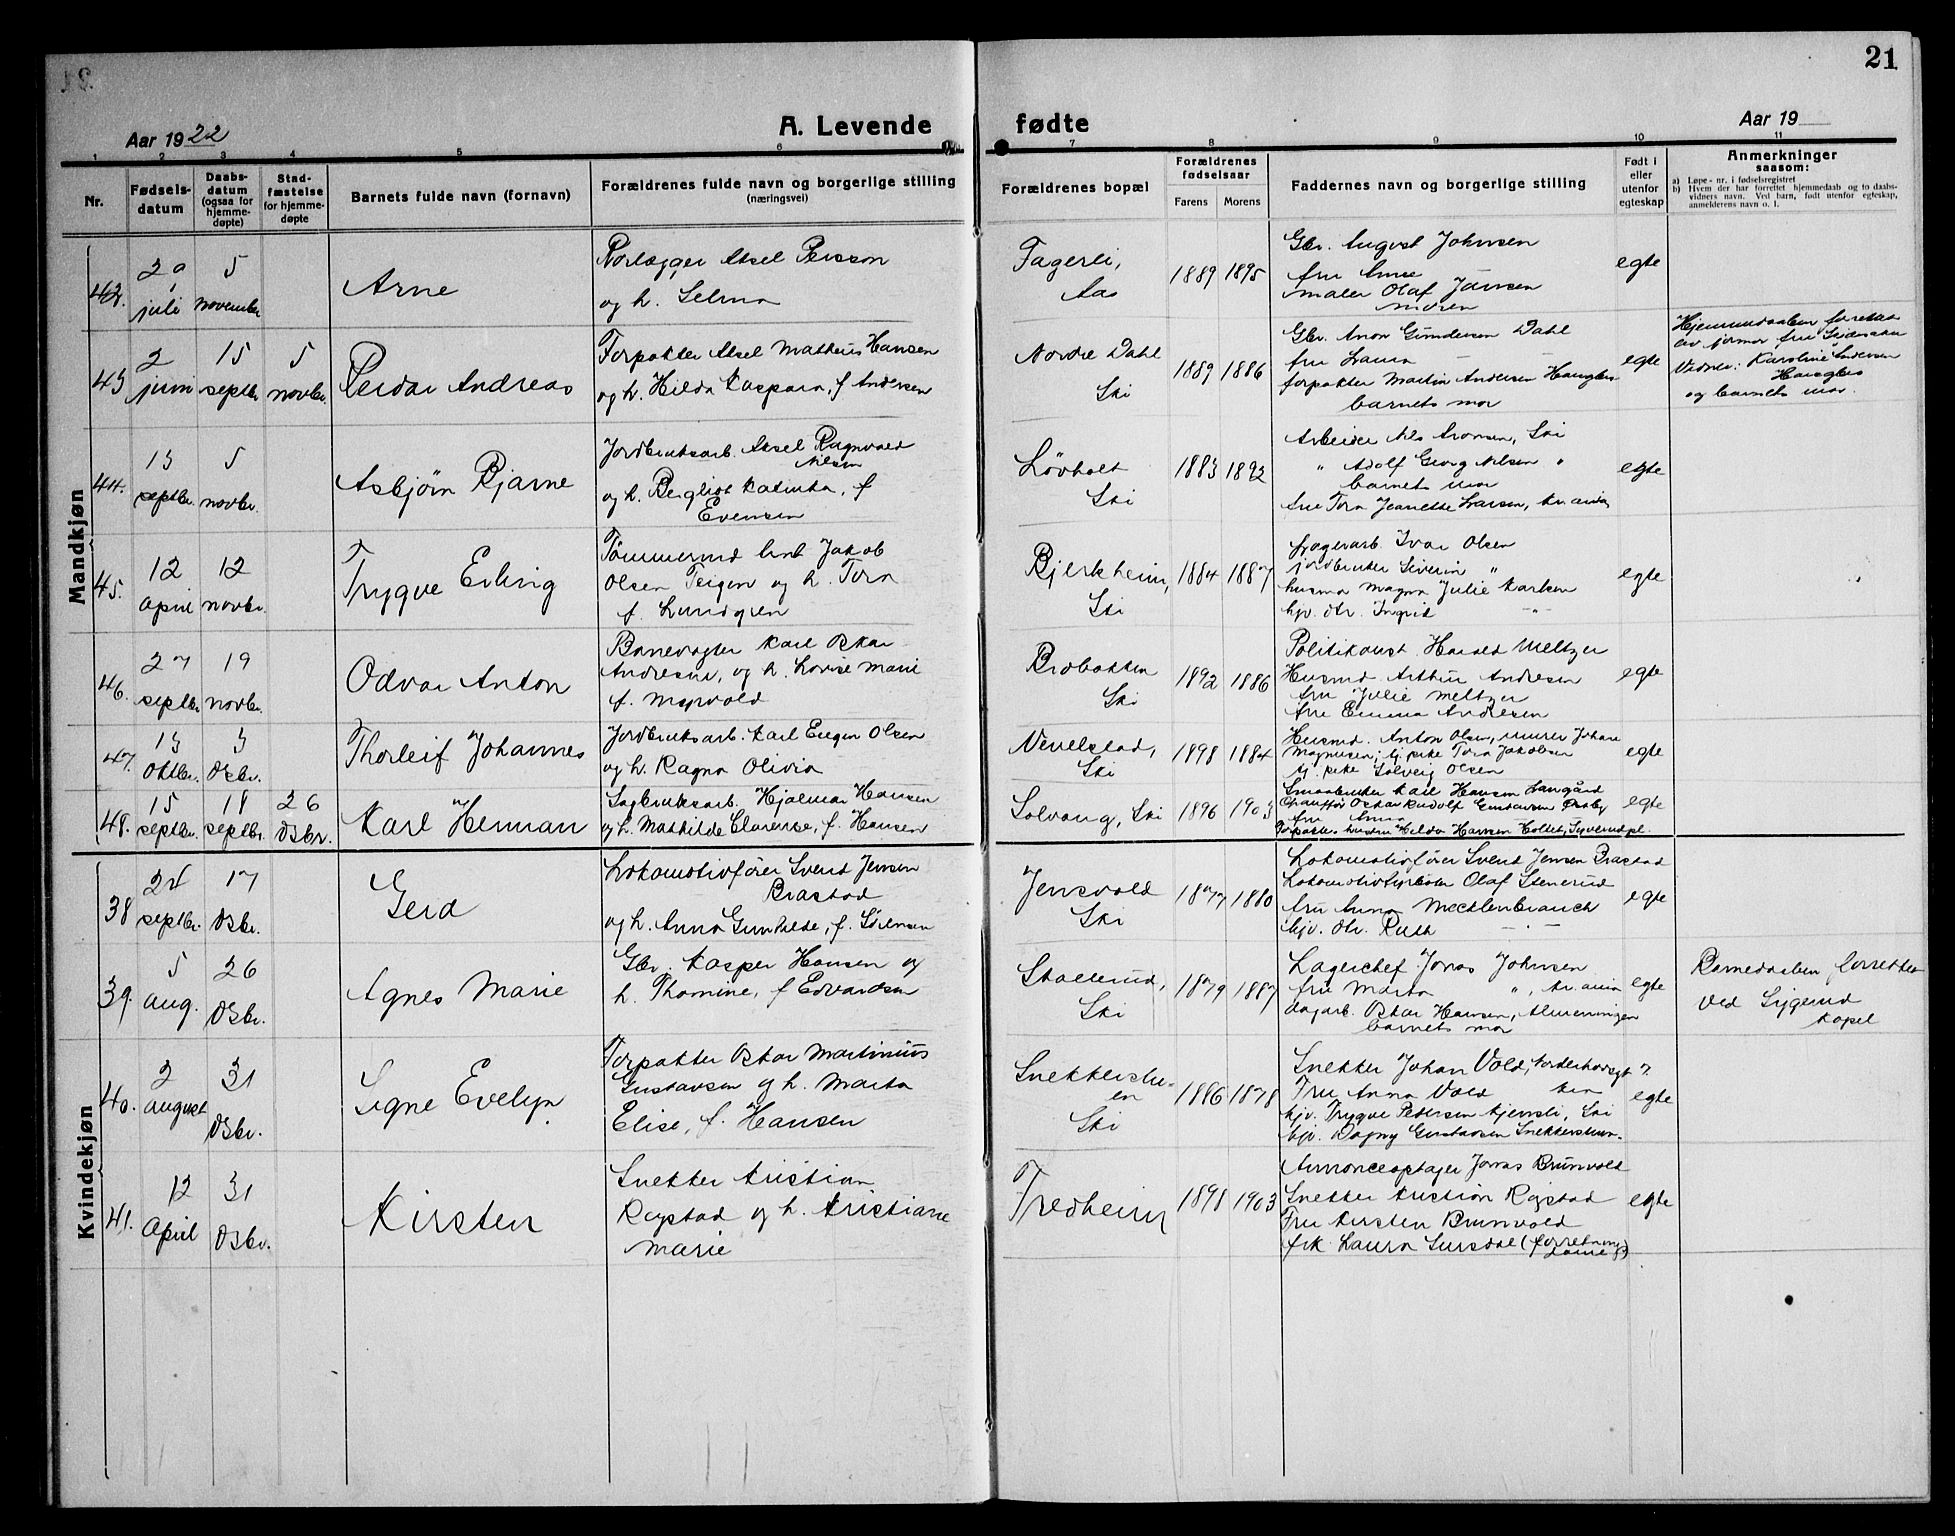 21
Aar 1922
A. Levende fødte
Aar 19
1 2 3 4 5 6 7 8 9 10 11
Nr.
Fødsels-
datum
Daabs-
datum
(ogsaa for
hjemme-
døpte)
Stad-
fæstelse
for hjemme-
døpte
Barnets fulde navn (fornavn)
Forældrenes fulde navn og borgerlige stilling
(næringsvei)
Forældrenes bopæl
Forældrenes
fødselsaar
Farens Morens
Faddernes navn og borgerlige stilling
Født i
eller
utenfor
egteskap
Anmerkninger
saasom:
a) Løpe-nr. i fødselsregistret
b) Hvem der har forrettet hjemmedaab og to daabs-
vidners navn. Ved barn, født utenfor egteskap,
anmelderens navn o. l.
Mandkjøn
42.
juli
5
november
Arne
Rørlægger Aksel Persson
og h. Selma
Fagerli,
Aas
1889 1895
Gbr. August Johnsen
fru Anna
maler Olaf Jansen
moren
egte
43
2
juni
15
septbr.
5
novbr.
Reidar Andreas
Forpakter Aksel Matheus Hansen
og h. Hilda Kaspara, f. Andersen
Nordre Dahl
Ski
1889 1886
Gbr. Anon Gundersen Dahl
fru Laura
forpakter Martin Andersen
barnets mor
egte
Hjemmedaaben forettet
av jormor fru
Vidner: Karoline Andersen
og barnets mor.
44.
13
septbr.
5
novbr.
Asbjørn Bjarne
Jordbruksarb. Aksel Ragnvald
Nilsen
og h. Bergliot Katinka, f
Evensen
Løvholt
Ski
1883 1892
Arbeider Nils Aronsen, Ski
" Adolf Georg Nilsen "
barnets mor
fru Tora Jeanette Larsen, Kr.ania
egte
45.
12
april
12
novbr.
Trygve Erling
Tømmermd Arnt Jakob
Olsen Teigen og h. Tora
f. Lundgren
Bjerkheim,
Ski
1884 1887
Lagerarb. Ivar Olsen
jordbruker Siverin "
husmor Magna Julie Karlsen
hjv. dtr. Ingrid -"-
egte
46.
27
septbr.
19
novbr.
Odvar Anton
Banevogter Karl Oskar
Andresen, og h. Lovise Marie
f. Myrvold
Brobakken
Ski
1892 1886
Politikonst. Harald Meltzer
Husmd. Arthur Andresen
fru Julie Meltzer
fru Emma Andresen
egte
47.
13
oktbr.
3
Dsbr.
Thorleif Johannes
Jordbruksarb. Karl Eugen Olsen
og h. Ragna Olivia
Vevelstad,
Ski
1898 1884
Husmd. Anton Olsen, murer Johan
Magnusen; tj. pike Tora Jakobsen
tj. pike Solveig Olsen
egte
48.
15
septbr.
18
septbr.
26
Dsbr.
Karl Herman
Sagbruksarb. Hjalmar Hansen
og h. Mathilde Clarense, f. Hansen
Solvang, Ski
1896 1903
Smaabruker Karl Hansen Langård
Chauffør Oskar Rudolf Gustavsen Ørsby
fru Anna
Forpakter hustru Hilda Hansen Holtet,
egte
Kvindekjøn
38
24
septbr.
17
Dsbr.
Gerd
Lokomotivfører Svend Jensen
Brastad
og h. Anna Gunhilde, f. Sørensen
Jensvold
Ski
1877 1880
Lokomotivfører Svend Jensen Brastad
Lokomotivfyrbøter Olaf Stenerud
fru Anna Mecklenbrauch
hjv. dtr. Ruth -"-
egte
39.
5
aug.
26
Dsbr.
Agnes Marie
Gbr. Kasper Hansen og
h. Thomine, f Edvardsen
Ski
1879 1887
Lagerchef Jonas Johnsen
fru Marta ", Kr.ania
dagarb. Oskar Hansen, Almenningen
barnets mor
egte
Barnedaaben forrettet
ved Sygerud
Kapel
40.
2
august
31
Dsbr.
Signe Evelyn
Forpakter Oskar Martinius
Gustavsen og h. Marta
Elise, f. Hansen
Snekkerstu-
en
Ski
1886 1878
Snekker Johan Vold, Norderhovsgt 7.
Fru Anna Vold Kra
hjv. Trygve Pedersen Kjensli, Ski
hjv. Dagny Gustavsen Snekkerstuen.
egte
41.
12
April
31
Dsbr.
Kirsten
Snekker Kristian
Rogstad og h. Kristiane
Marie
Fredheim
1898 1903
Annonceoptager Jonas Brunvold
Snekker Kristian Rogstad
Fru Kirsten Brunvold
frk. Laura Sursdal (forretnings
dame)
egte